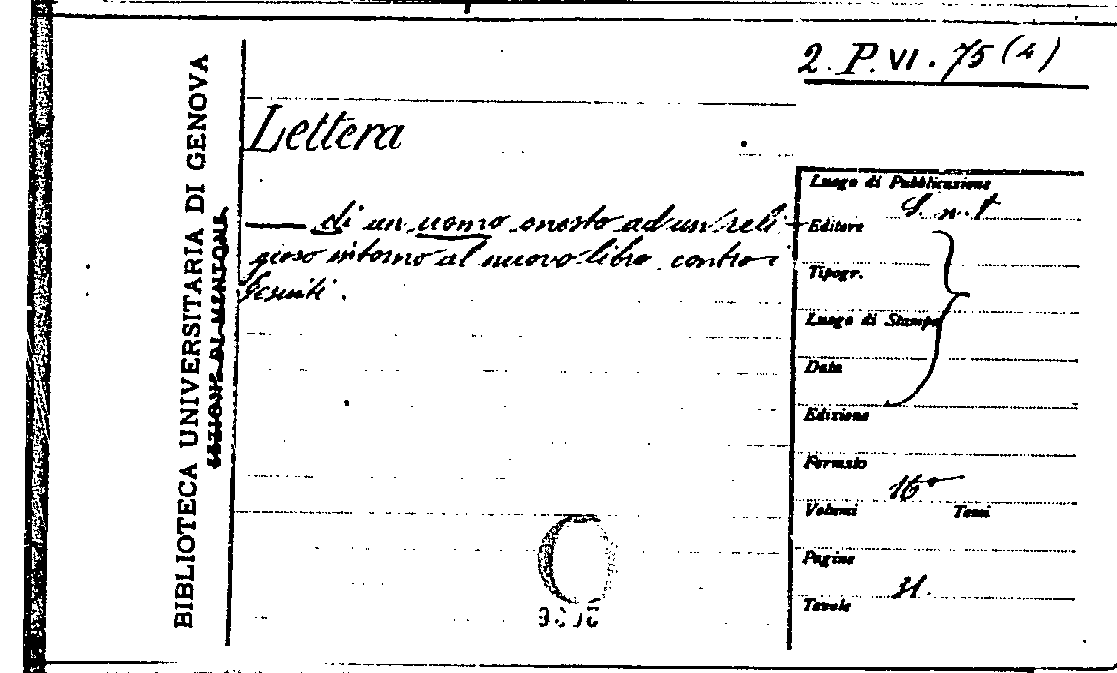 2. P. VI. 75 (4)
BIBLIOTECA UNIVERSITARIA DI GENOVA
Lettera
—— di un uomo onesto ad un reli-
gioso intorno al nuovo libro contro i
Gesuiti.
Luogo di Pubblicazione
S. n. t
Editore
Tipogr.
Luogo di Stampa
Data
Edizione
Formato
16°
Volumi Tomi
Pagine
31.
Tavole